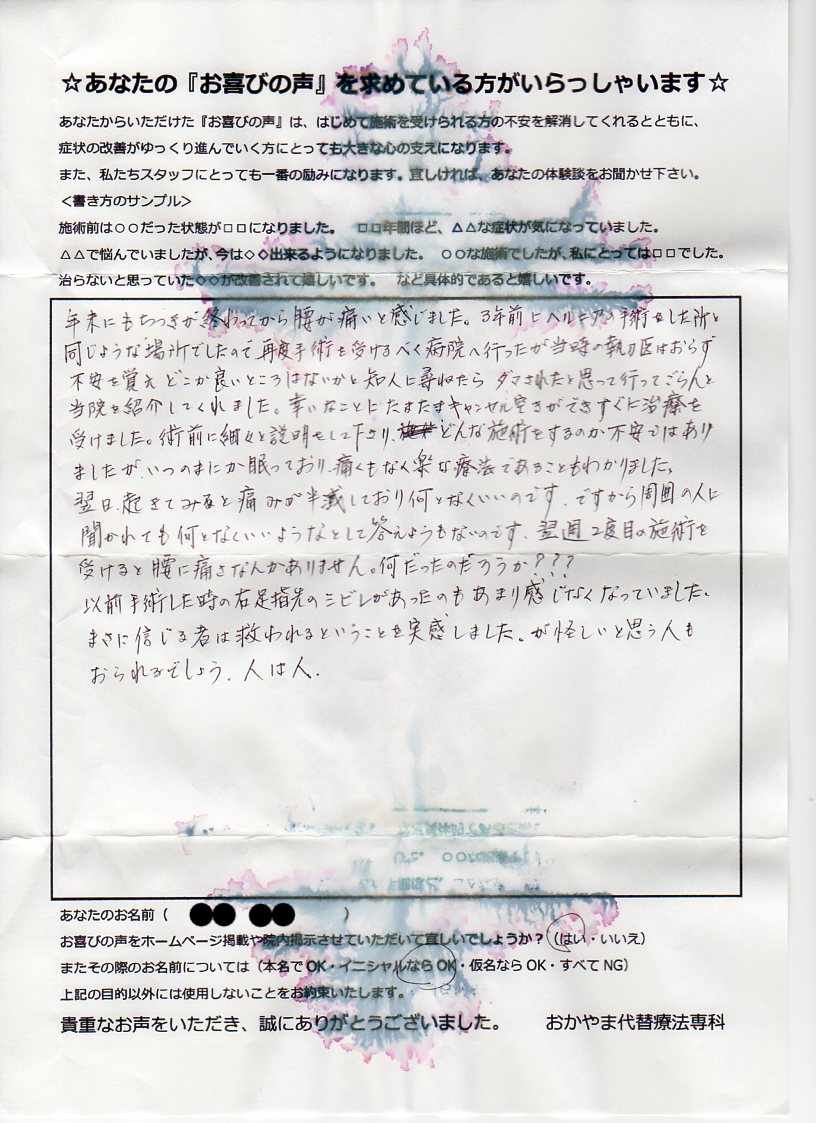 ☆あなたの『お喜びの声』を求めている方がいらっしゃいます☆
あなたからいただけた『お喜びの声』は、はじめて施術を受けられる方の不安を解消してくれるとともに、
症状の改善がゆっくり進んでいく方にとっても大きな心の支えになります。
また、私たちスタッフにとっても一番の励みになります。宜しければ、あなたの体験談をお聞かせ下さい。
＜書き方のサンプル＞
施術前は○○だった状態が□□になりました。　□□年間ほど、△△な症状が気になっていました。
△△で悩んでいましたが、今は◇◇出来るようになりました。　○○な施術でしたが、私にとっては□□でした。
治らないと思っていた◇◇が改善されて嬉しいです。　など具体的であると嬉しいです。
年末にもちつきが終わってから腰が痛いと感じました。3年前にヘルニアの手術をした所と
同じような場所でしたので再度手術を受けるべく病院へ行ったが当時の執刀医はおらず
不安を覚えどこか良いところはないかと知人に尋ねたら ダマされたと思って行ってごらんと
当院を紹介してくれました。幸いなことにたまたまキャンセル空きができすぐに治療を
受けました。術前に細々と説明をして下さり、どんな施術をするのか不安ではあり
ましたが、いつのまにか眠っており、痛くもなく楽な療法であることもわかりました。
翌日、起きてみると痛みが半減しており何となくいいのです、ですから周囲の人に
聞かれても何となくいいようなとして答えようもないのです、翌週2度目の施術を
受けると腰に痛さなんかありません。何だったのだろうか？？？
以前手術した時の右足指先のシビレがあったのもあまり感じなくなっていました。
まさに信じる者は救われるということを実感しました。が怪しいと思う人も
おられるでしょう、人は人、
あなたのお名前（　●● ●●　）
お喜びの声をホームページ掲載や院内掲示させていただいて宜しいでしょうか？（はい・いいえ）
またその際のお名前については（本名でOK・イニシャルならOK・仮名ならOK・すべてNG）
上記の目的以外には使用しないことをお約束いたします。
貴重なお声をいただき、誠にありがとうございました。　　おかやま代替療法専科